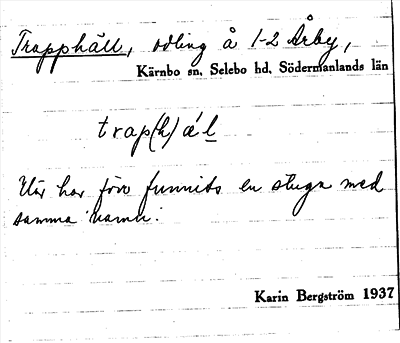 Trapphäll, odling å 1-2 Årby,
Kärnbo sn, Selebo hd, Södermanlands län
trap(h)ä́l
Här har förr funnits en stuga med
samma namn.
Karin Bergström 1937